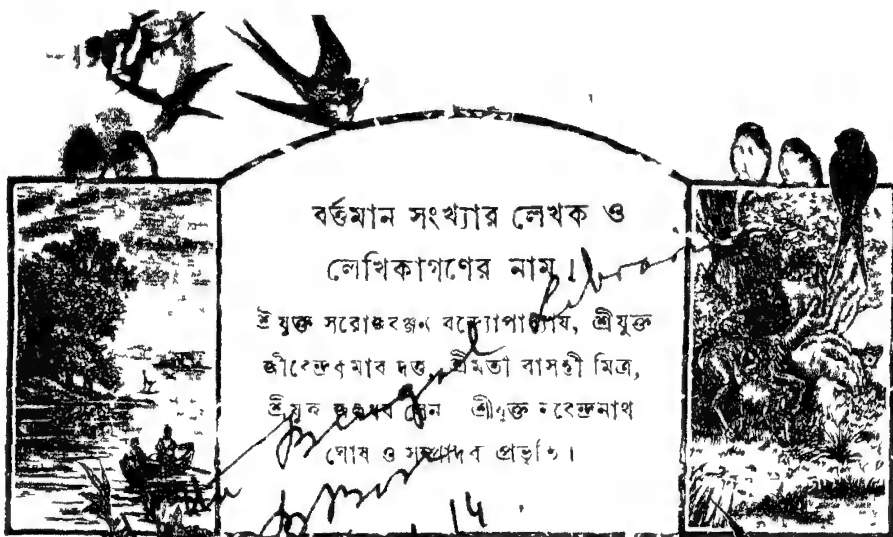 বর্ত্তমান সংখ্যার লেখক ও
লেখিকাগণের নাম।
শ্রীযুক্ত সরোজরঞ্জন বন্দ্যোপাধ্যায়, শ্রীযুক্ত
জীবেন্দ্রকুমার দত্ত, শ্রীমতী বাসন্তী মিত্র,
শ্রীযুক্ত জলধর সেন শ্রীযুক্ত নরেন্দ্রনাথ
ঘোষ ও সম্পাদক প্রভৃতি।
14